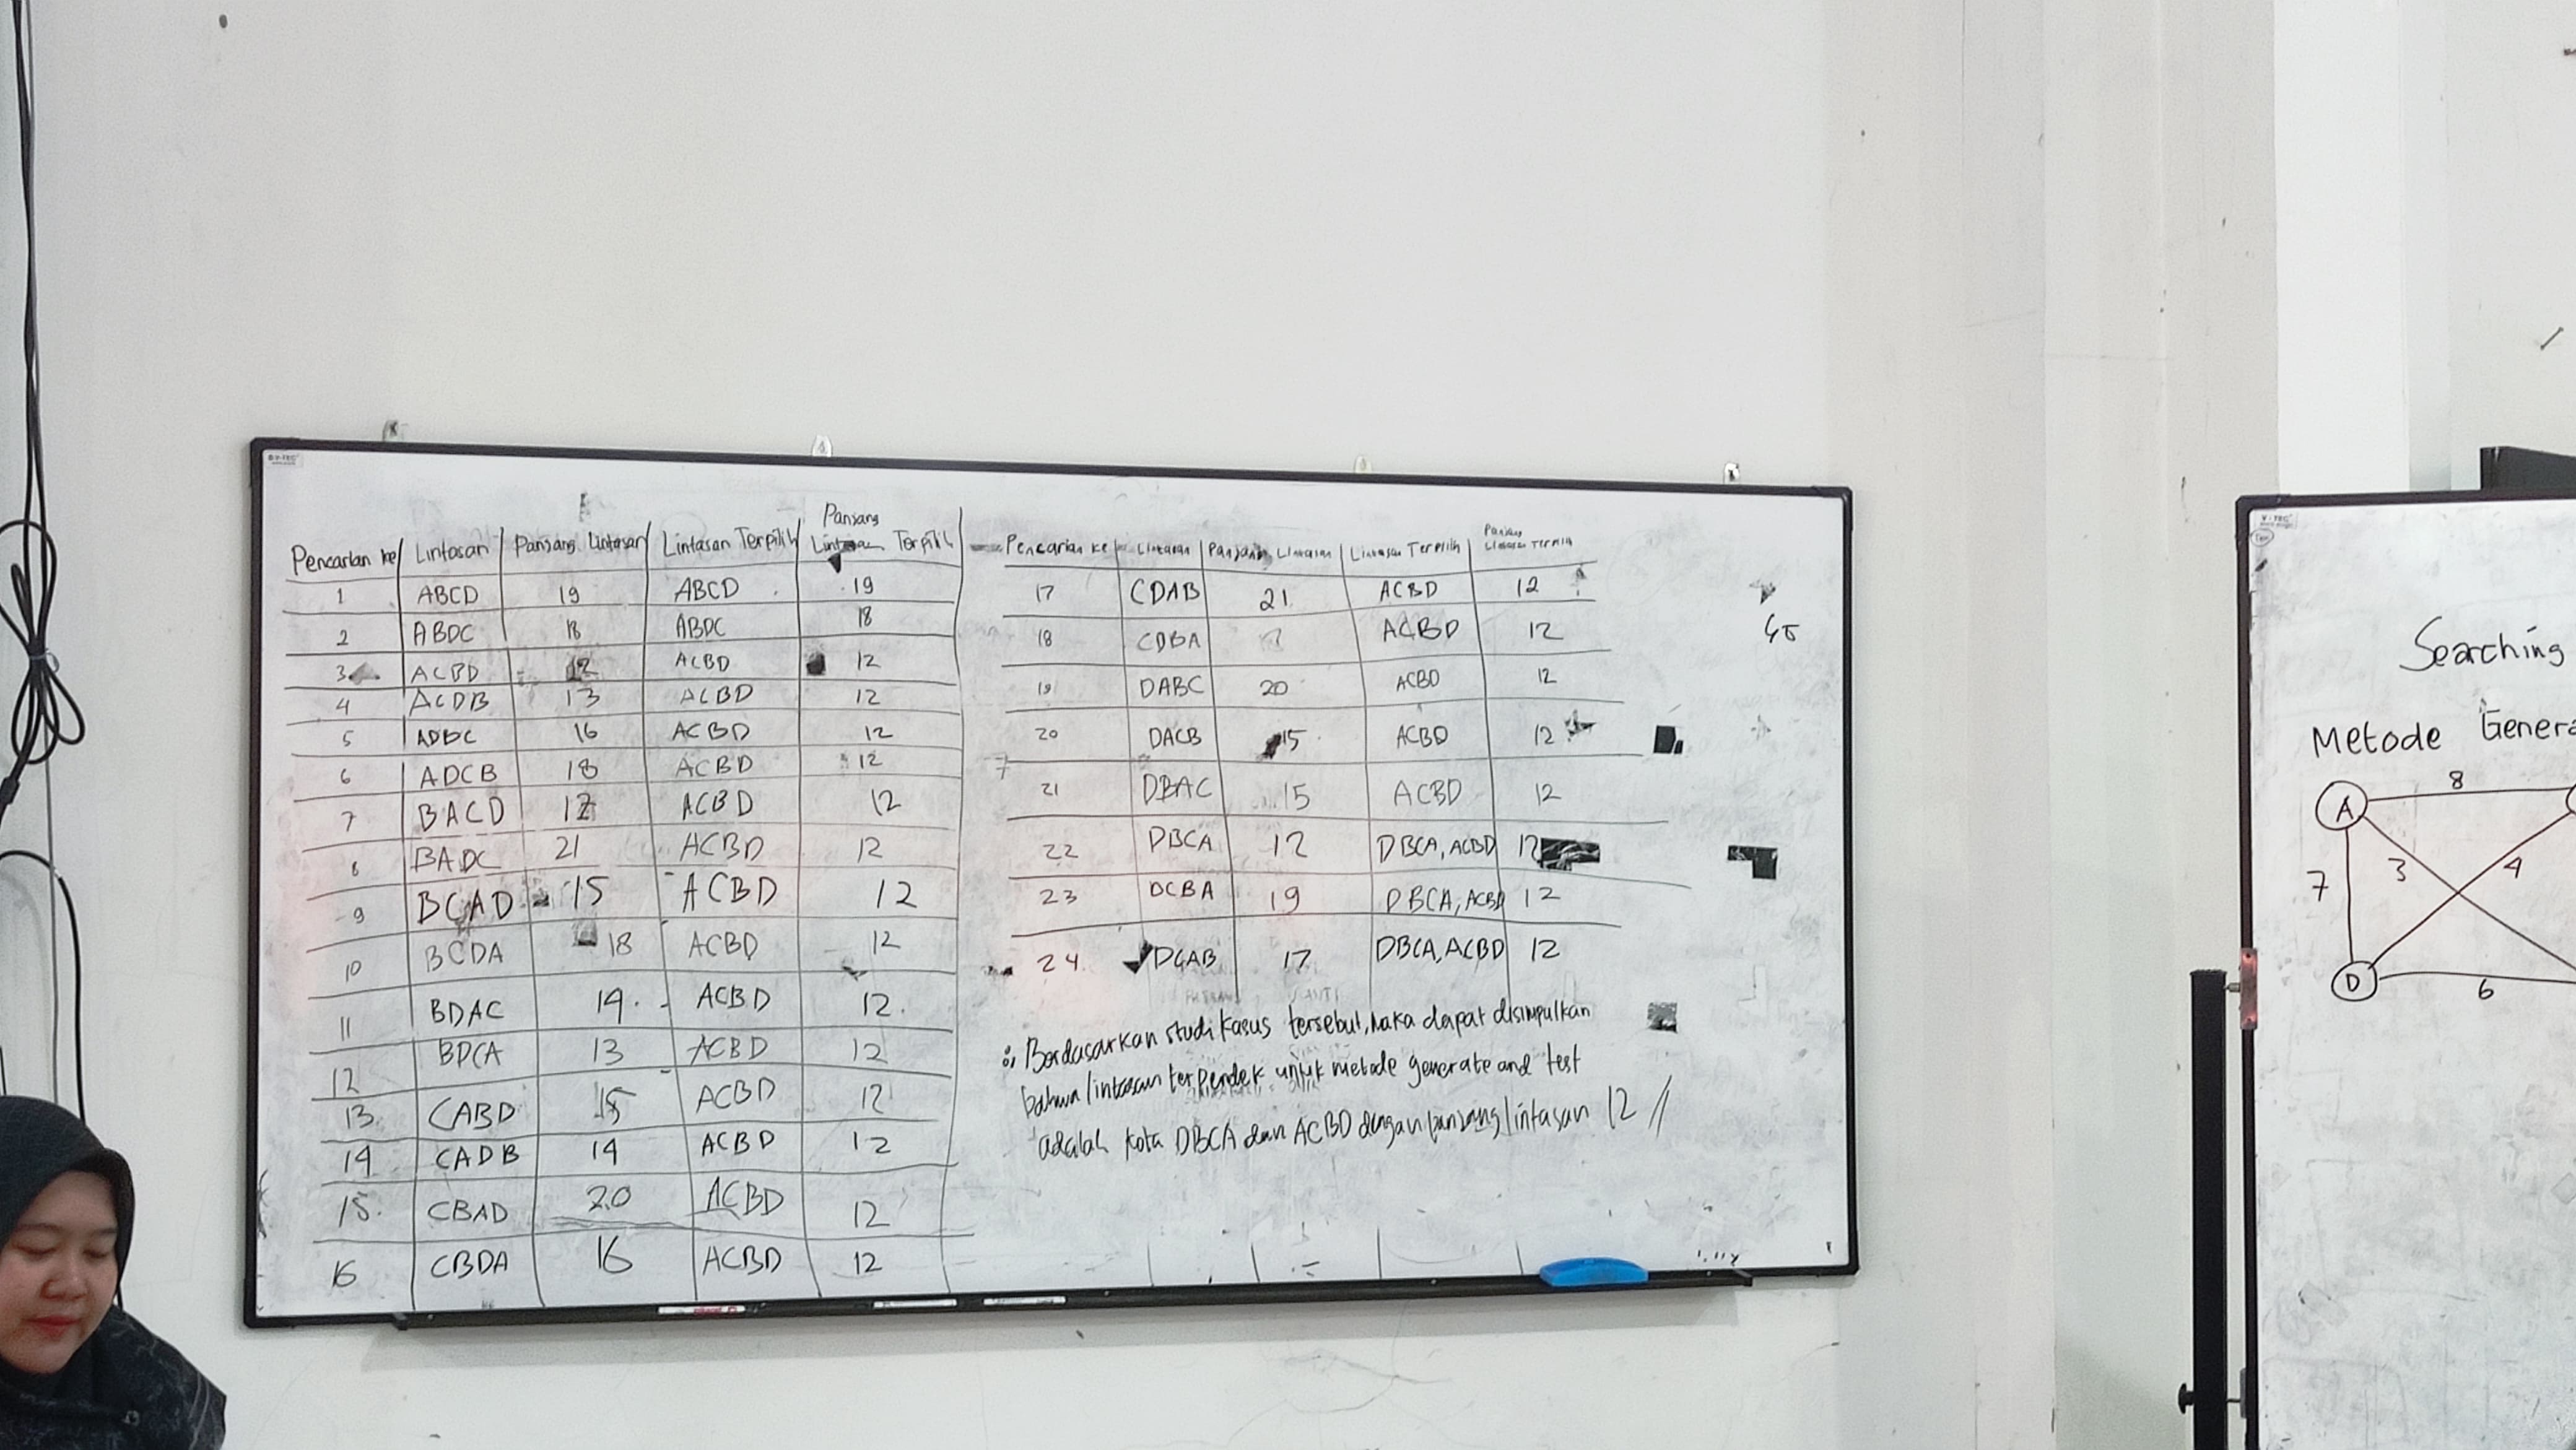 Pencarian ke Lintasan Panjang Lintasan Lintasan Terpilih Panjang Lintasan Terpilih
1 ABCD 19 ABCD 19
2 ABDC 18 ABDC 18
3 ACBD 12 ACBD 12
4 ACDB 13 ACBD 12
5 ADBC 16 ACBD 12
6 ADCB 18 ACBD 12
7 BACD ACBD 12
8 BADC 21 ACBD 12
9 BCAD 15 ACBD 12
10 BCDA 18 ACBD 12
11 BDAC 14 ACBD 12
12 BDCA 13 ACBD 12
13. CABD 15 ACBD 12
14 CADB 14 ACBD 12
15. CBAD 20 ACBD 12
16 CBDA 16 ACBD 12
Pencarian ke Lintasan Panjang Lintasan Lintasan Terpilih Panjang Lintasan Terpilih
17 CDAB 21 ACBD 12
18 CDBA ACBD 12
19 DABC 20 ACBD 12
20 DACB 15 ACBD 12
21 DBAC 15 ACBD 12
22 DBCA 12 DBCA, ACBD 12
23 DCBA 19 DBCA, ACBD 12
24 DCAB 17 DBCA, ACBD 12
∴ Berdasarkan studi kasus tersebut, maka dapat disimpulkan
bahwa lintasan terpendek untuk metode generate and test
adalah kota DBCA dan ACBD dengan panjang lintasan 12 //
V-TEC
Searching
Metode Genera
A 8
7 3 4
D 6